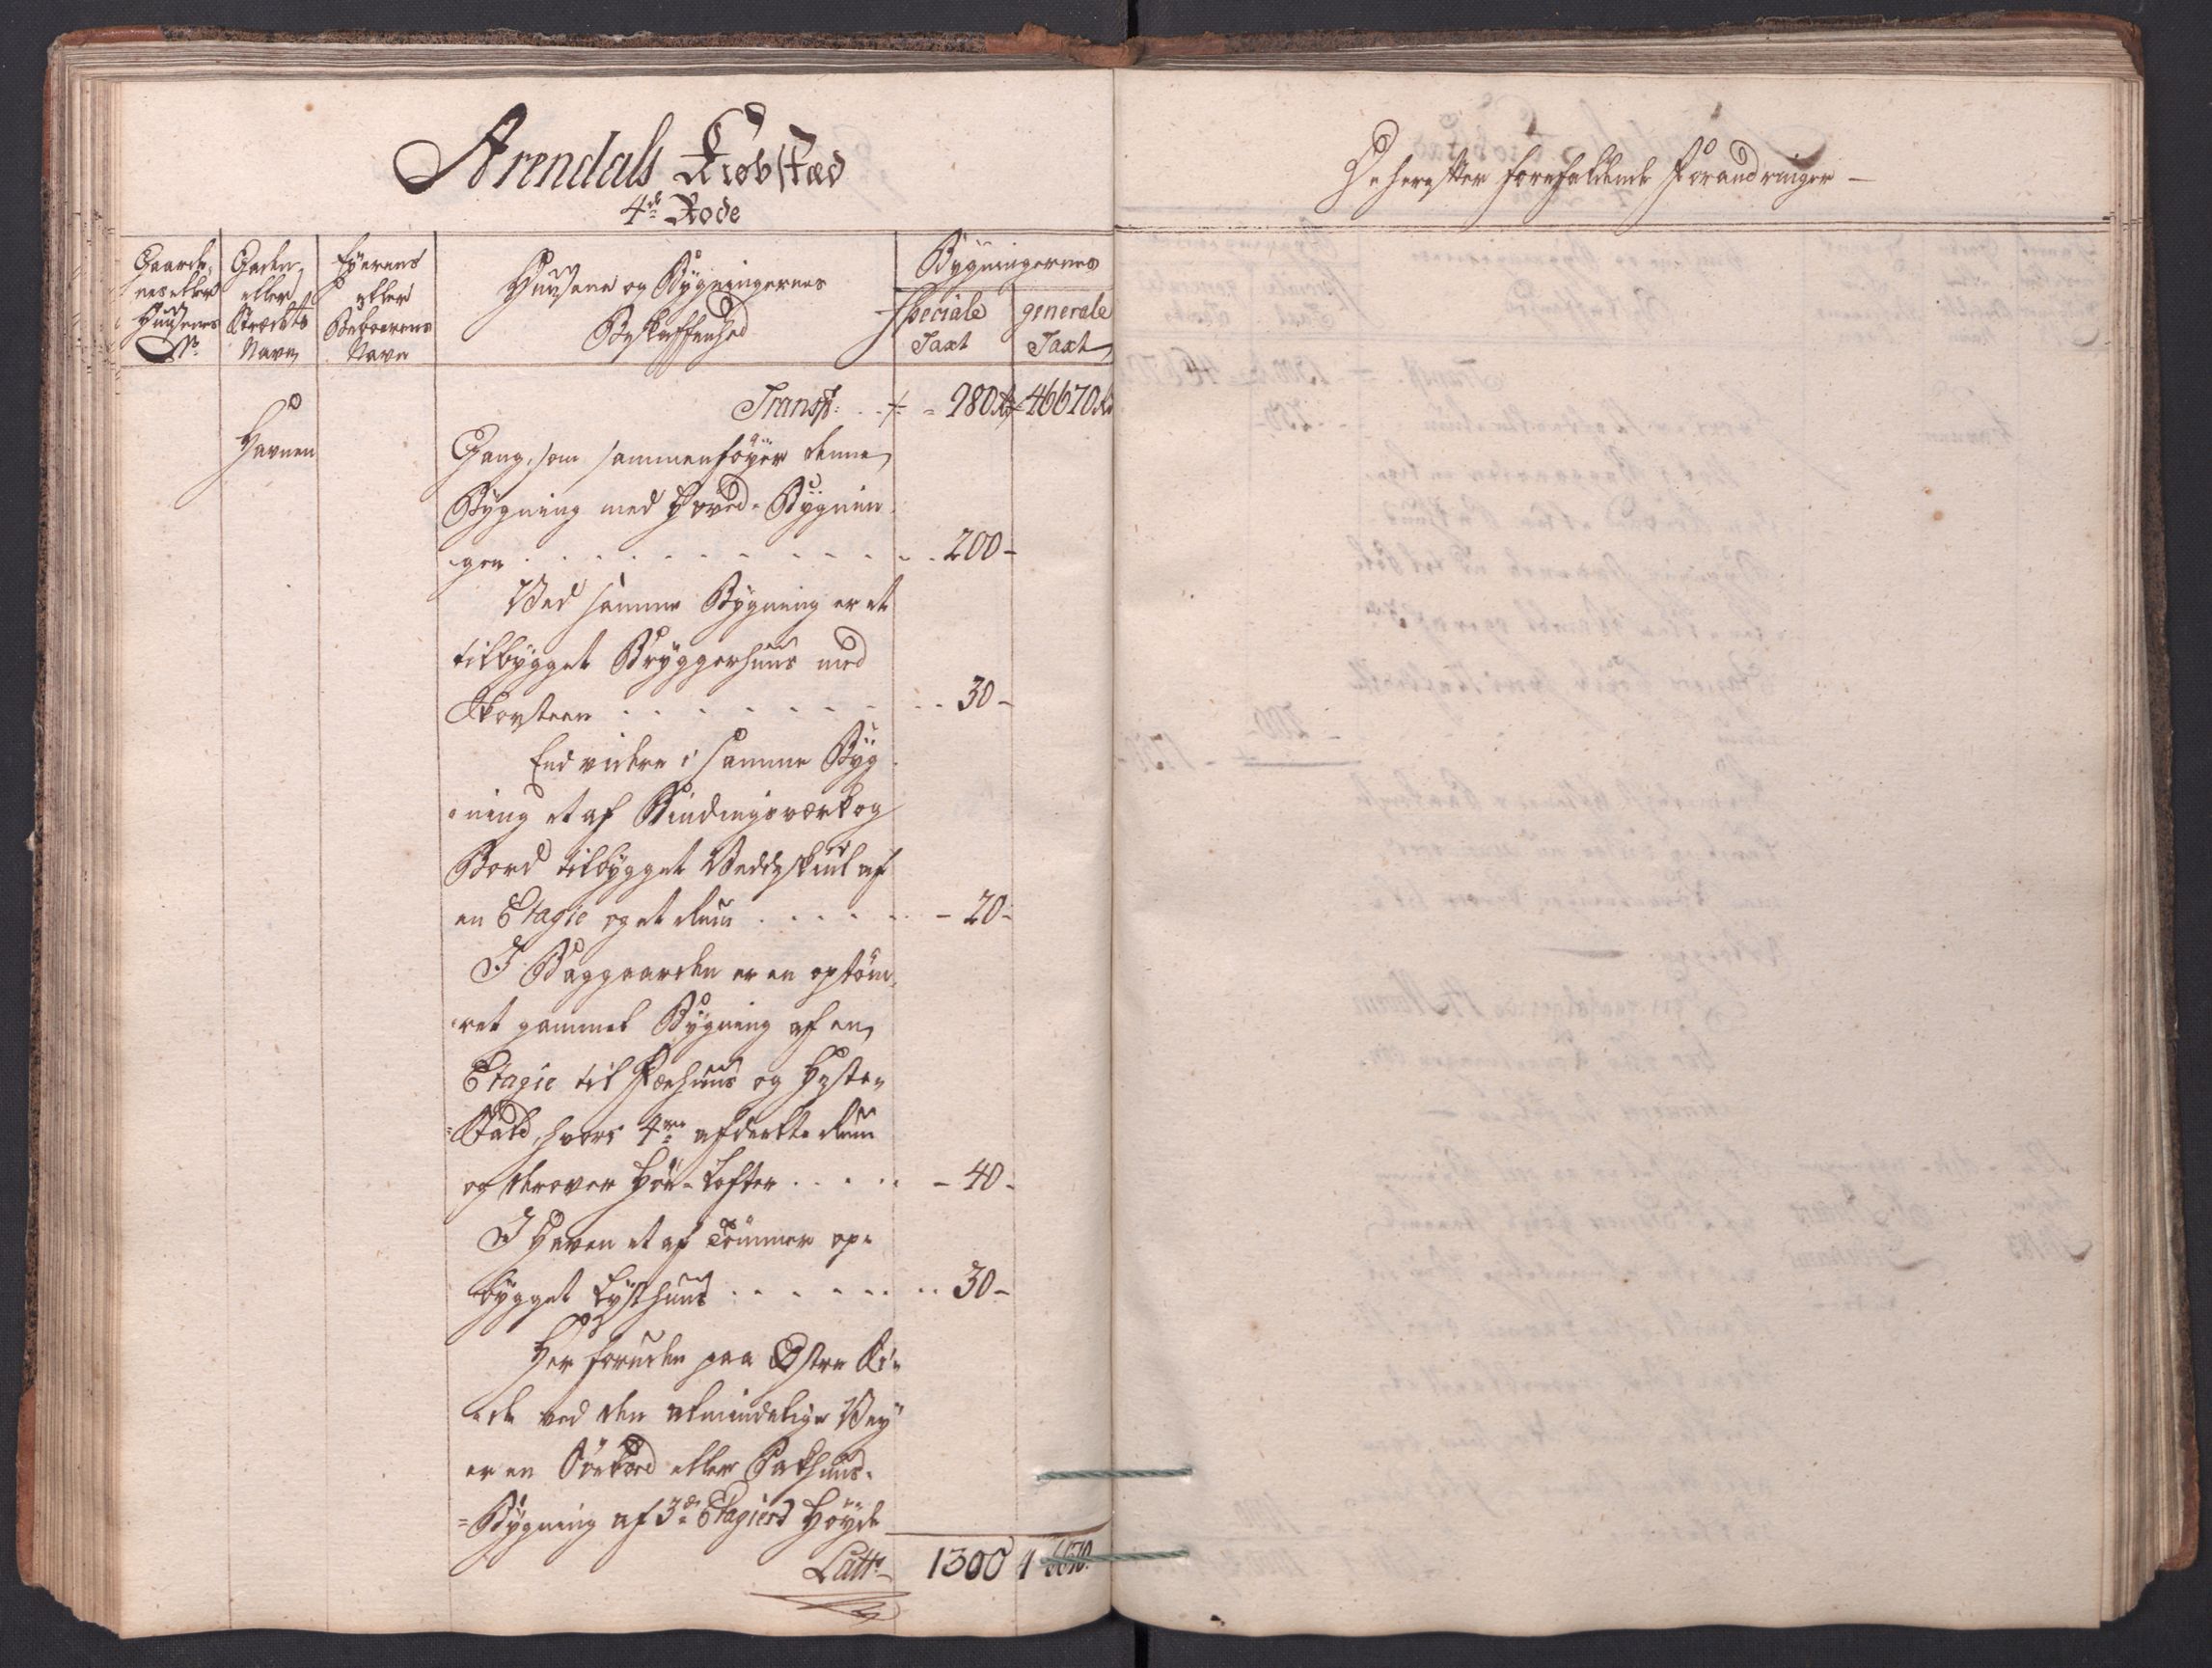 Arendals Kiøbstæd
4de Rode
Gaarde-
nes eller
Huusenes
No
Gaden
eller
Strædets
Navn
Eyerens
eller
Beboerens
Navn
Huusene og Bygningernes
Beskaffenhed
Bygningernes
speciale
Taxt
generale
Taxt
Transp. 980 46670
Havnen
Gang, som sammenføyer denne
Bygning med Hoved-Bygnin
gen 200-
Ved samme Bygning er et
tilbygget Bryggerhuus med
Skorsteen 30-
End videre i samme Byg
ning et af Bindingsværk og
Bord tilbygget Vedskiul af
en Etagie og et Rum 20-
I Baggaarden er en optøm-
ret gammel Bygning af en
Etagie til Fæehuus og Heste-
Stald, hvori 4re afdeelte Rum
og derover Høe-Lofter 40-
I Haven et af Tømmer op-
bygget Lysthuus 30-
Her foruden paa Østre
ved den almindelige Vey
er en Søeboed eller Pakhuus-
Bygning af 3de Etagiers Høyde
Latt. 1300 46670.
De herefter forefaldende Forandringer